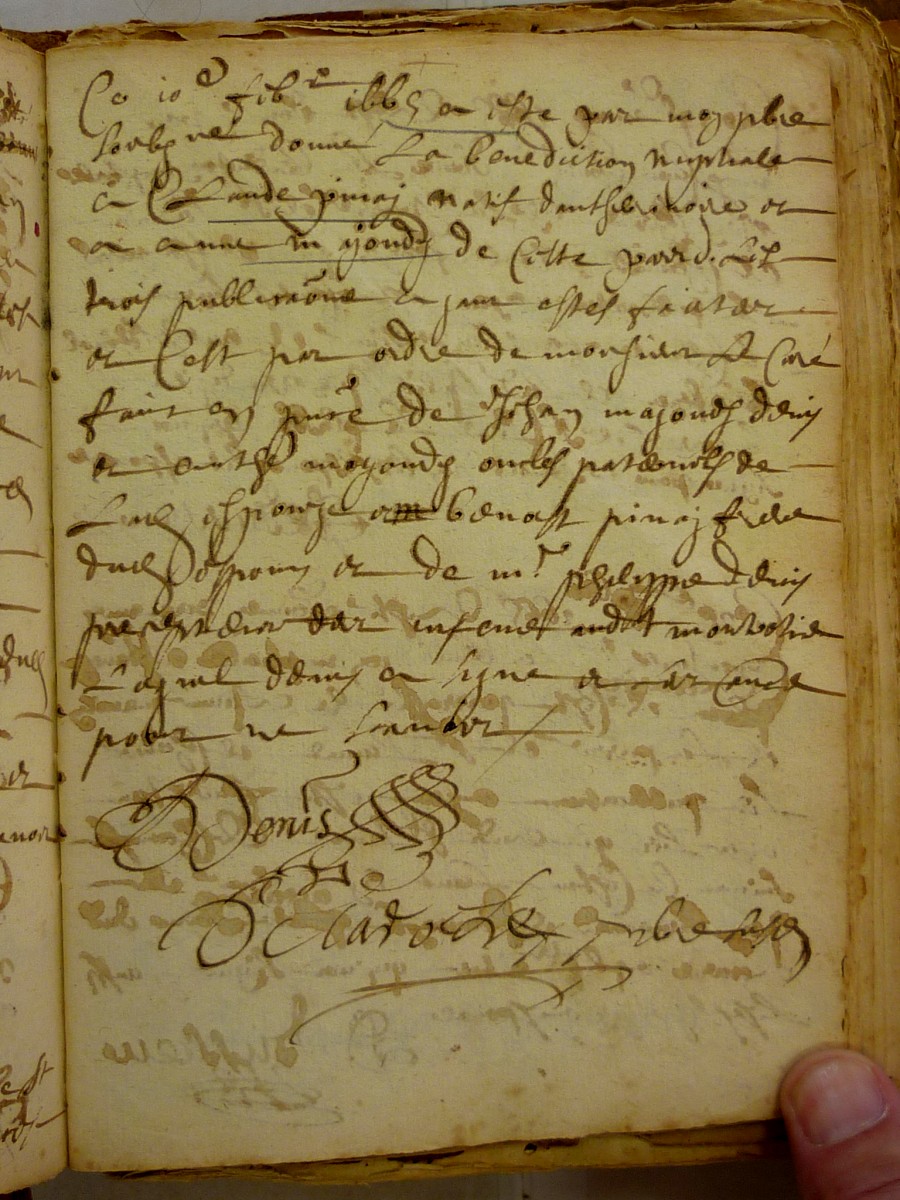 Ce 10e feb.r 1665 a este par moy pbre
soubgne donné La benediction nuptiale
a Claude pinaj natif dantherinoire et
a anne majoudz de Ceste parr. Les
trois publicaõns ajant estes faictes
et C'est par ordre de monsieur Le Curé
faict en pnce de Jehan majoudz denis
et anthe mayoudz oncles paternels de
Lad. Espouze et benoist pinaj frere
dud. Espoux et de mr. philippe denis
precepteur des enfens audit montrotier
Lequel denis a signe et les autres
pour ne scavoir
Denis
Delaroche pbre susd.